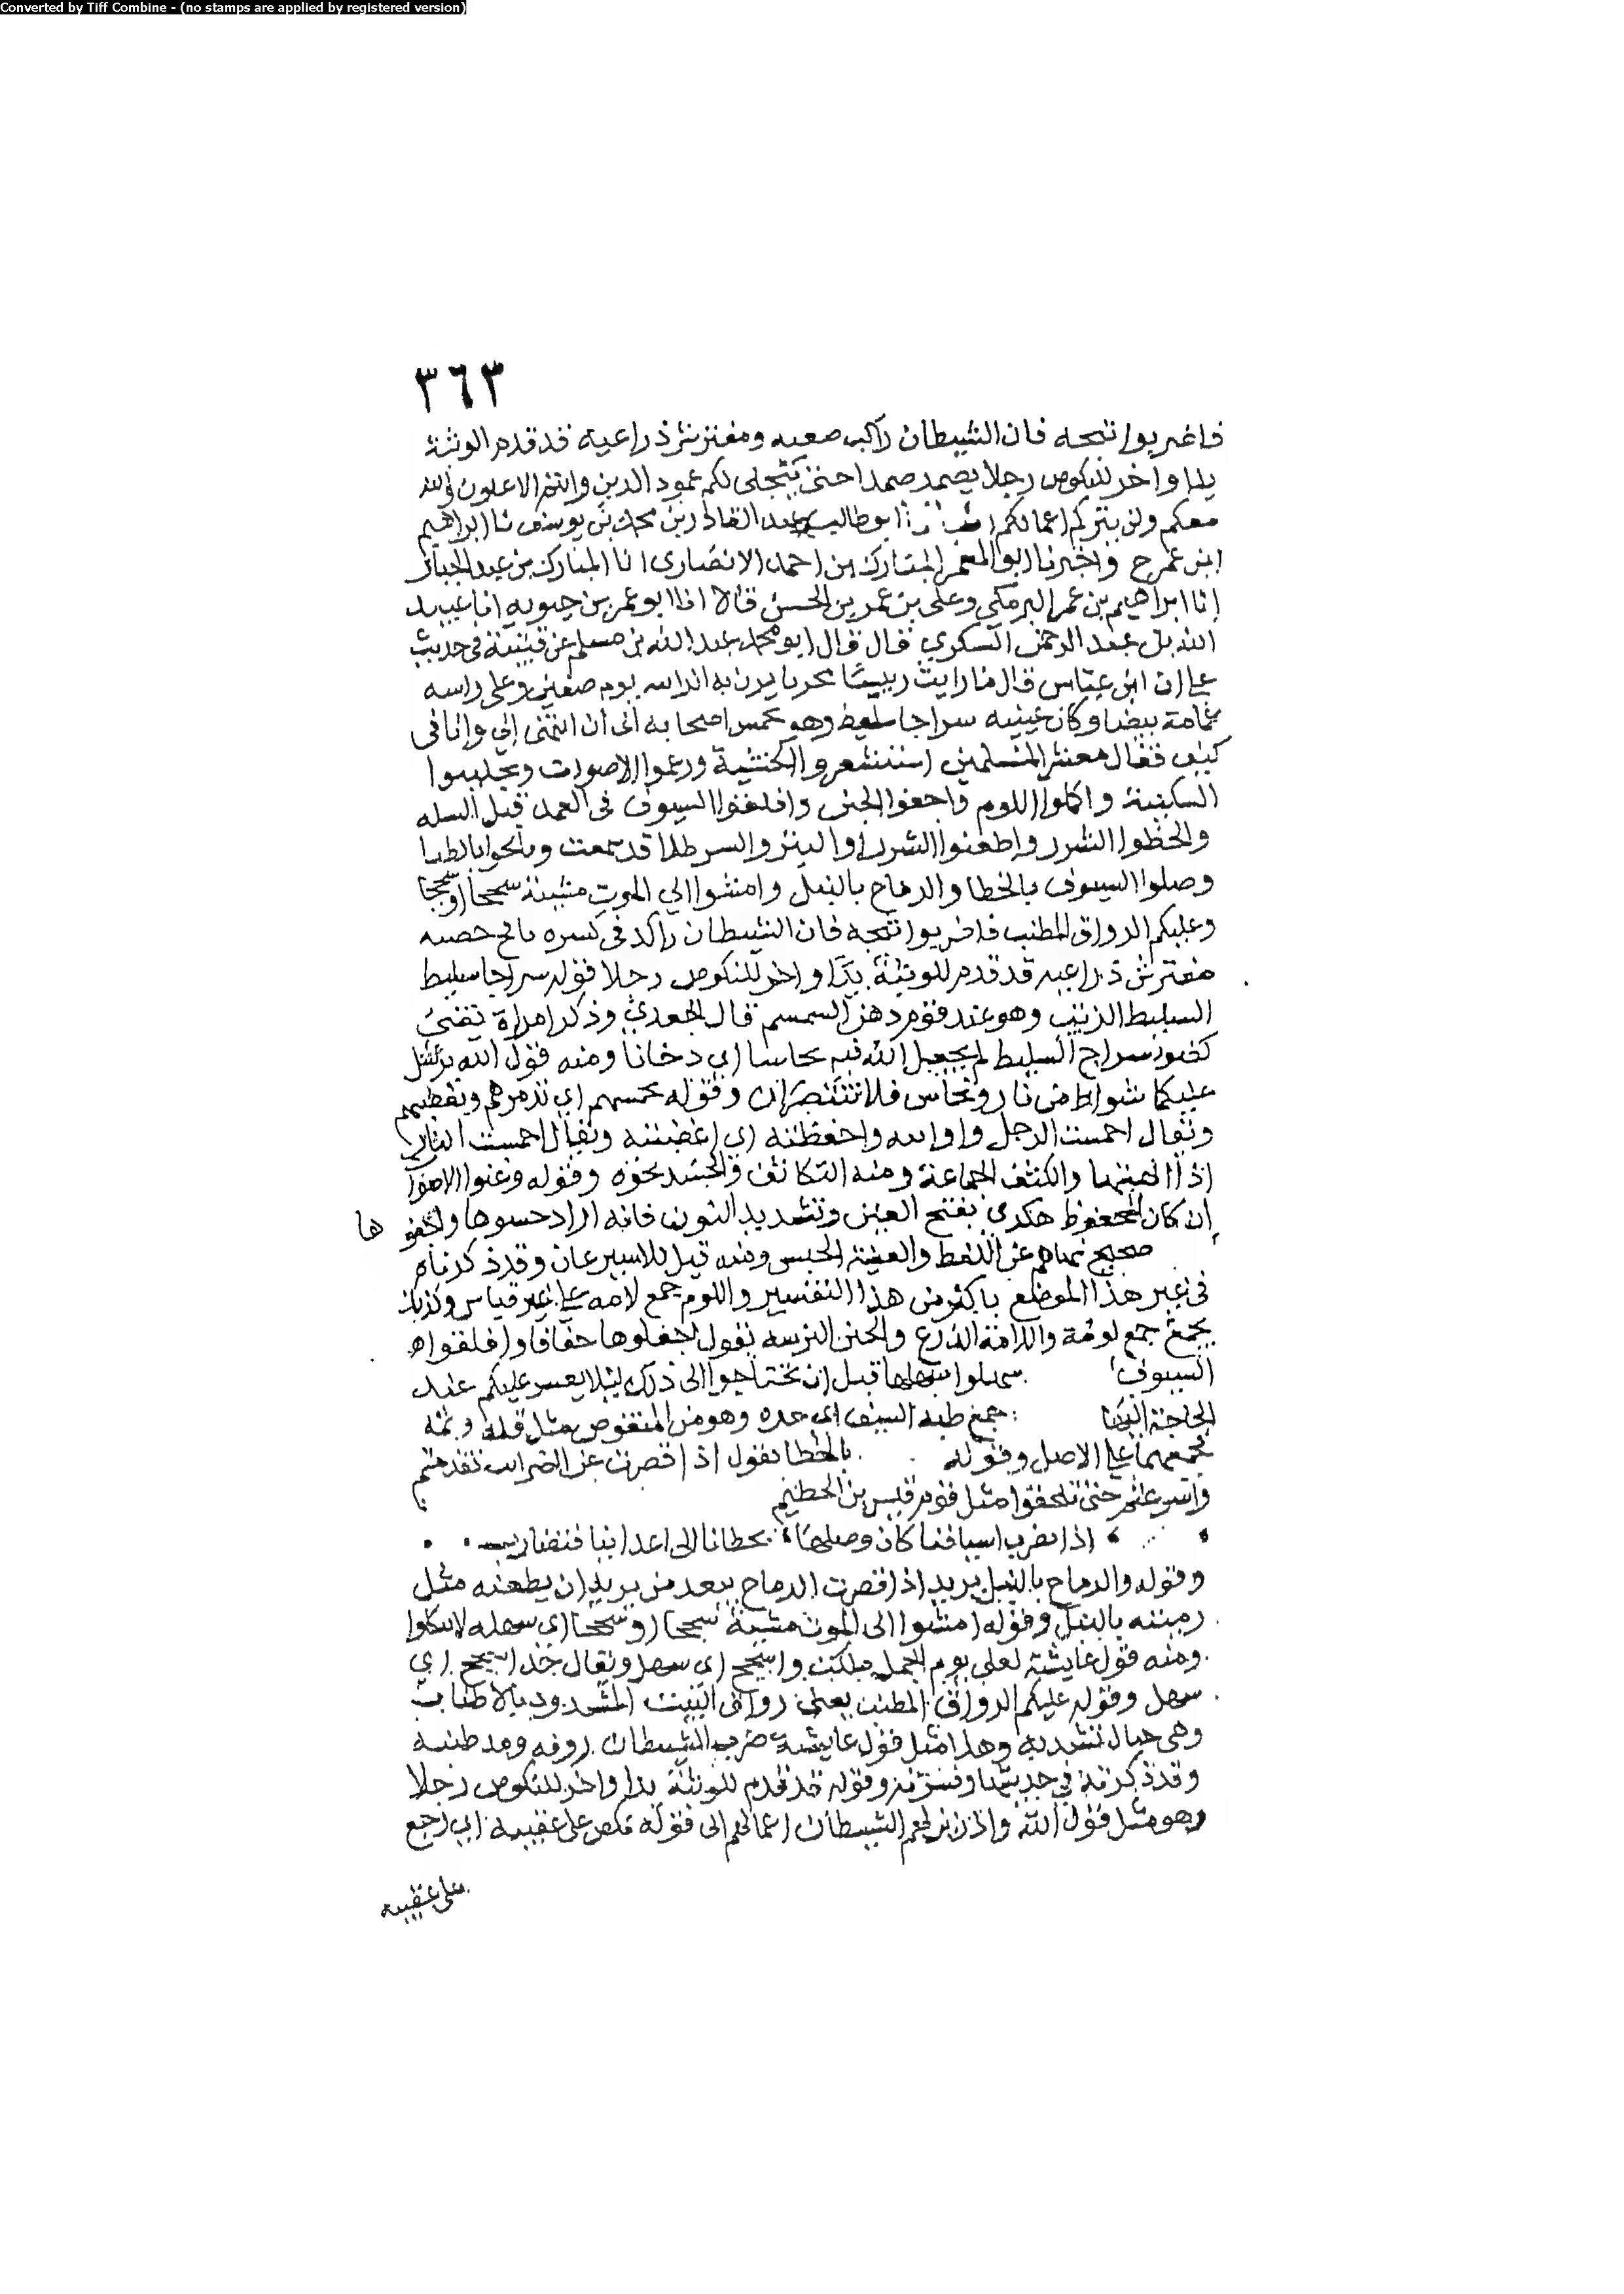 Converted by Tiff Combine - (no stamps are applied by registered version)
٣٦٣
فاضربوا ثبجه فان الشيطان راكب صعبه ومفترش ذراعيه قد قدم الوثبة
يدا واخر للنكوص رجلا يصمد صمدا حتى يتجلى لكم عمود الدين وانتم الاعلون والله
معكم ولن يتركم اعمالكم ابو طالب عبد القادر بن محمد بن يوسف نا ابراهيم
ابن عمر ح واخبرنا ابو المعمر المبارك بن احمد الانصاري انا المبارك بن عبد الجبار
انا ابراهيم بن عمر البرمكي وعلي بن عمر بن الحسن قالا انا ابو عمر بن حيويه انا عبيد
الله بن عبد الرحمن السكري قال قال ابو محمد عبد الله بن مسلم عن قتيبة في حديث
علي ان ابن عباس قال ما رايت رييسا محربا يزن به اتاه يوم صفين وعلى راسه
عمامة بيضا وكان عينيه سراجا سليط وهو يحمس اصحابه الى ان انتهى الي وانا في
كثف فقال معشر المسلمين استشعروا الخشية وعنوا الاصوات وتجلببوا
السكينة واكملوا اللوم واخفوا الجنن واقلقوا السيوف في الغمد قبل السله
والحظوا الشزر واطعنوا الشزر او النتر واليسر طلا قد سمعت ونافحوا بالظبا
وصلوا السيوف بالخطا والرماح بالنبل وامشوا الى الموت مشية سجحا او سجحا
وعليكم الرواق المطنب فاضربوا ثبجه فان الشيطان راكد في كسره نافح حضنيه
مفترش ذراعيه قد قدم للوثبة يدا واخر للنكوص رجلا قوله سراجا سليط
السليط الزيت وهو عند قوم دهن السمسم قال الجعدي وذكر امراة تضيء
كضوء سراج السليط لم يجعل الله فيه نحاسا اي دخانا ومنه قول الله يرسل
عليكما شواظ من نار ونحاس فلا تنتصران وقوله يحمسهم اي يذمرهم ويغضبهم
ويقال احمست الرجل واوابته واحفظته اي اغضبته ويقال احمست النار
اذا الهبتها والكثف الجماعة ومنه التكاثف والحشد نحوه وقوله وعنوا الاصوا
ان كان المحفوظ هكذي بفتح العين وتشديد النون فانه اراد احبسوها واخفوها
صحيح نهاهم عن اللغط والتعنية الحبس ومنه قيل للاسير عان وقد ذكرناه
في غير هذا الموضع باكثر من هذا التفسير واللوم جمع لامه على غير قياس وكذلك
يجمع جمع لومة واللامة الدرع والجنن الترسه يقول اجعلوها خفافا واقلقوا
السيوف سهلوا سلها قبل ان تحتاجوا الى ذلك ليلا يعسر عليكم عند
الحاجة اليها جمع ظبة السيف اي حده وهو من المنقوص مثل قلة وثبه
تجمعهما على الاصل وقوله بالخطا يقول اذا قصرت عن الضرايب تقدمتم
واسرعتم حتى تلحقوا مثل قوم قيس بن الخطيم
اذا قصرت اسيافنا كان وصلها خطانا الى اعداينا فنضارب
وقوله والرماح بالنبل يريد اذا قصرت الرماح ببعد من يريد ان يطعنه مثل
رميته بالنبل وقوله امشوا الى الموت مشية سجحا او سجحا اي سهله لا تنكلوا
ومنه قول عايشة لعلي يوم الجمل ملكت واسجح اي سهل ويقال خد اسجح اي
سهل وقوله عليكم الرواق المطنب يعني رواق البيت المشدود بالاطناب
وهي حبال تشد به وهذا مثل قول عايشة ضرب الشيطان روقه ومد طنبه
وقد ذكرته في حديثها وفسرته وقوله قد قدم للوثبة يدا واخر للنكوص رجلا
وهو مثل قول الله واذ زين لهم الشيطان اعمالهم الى قوله نكص على عقبيه اي رجع
على عقبيه